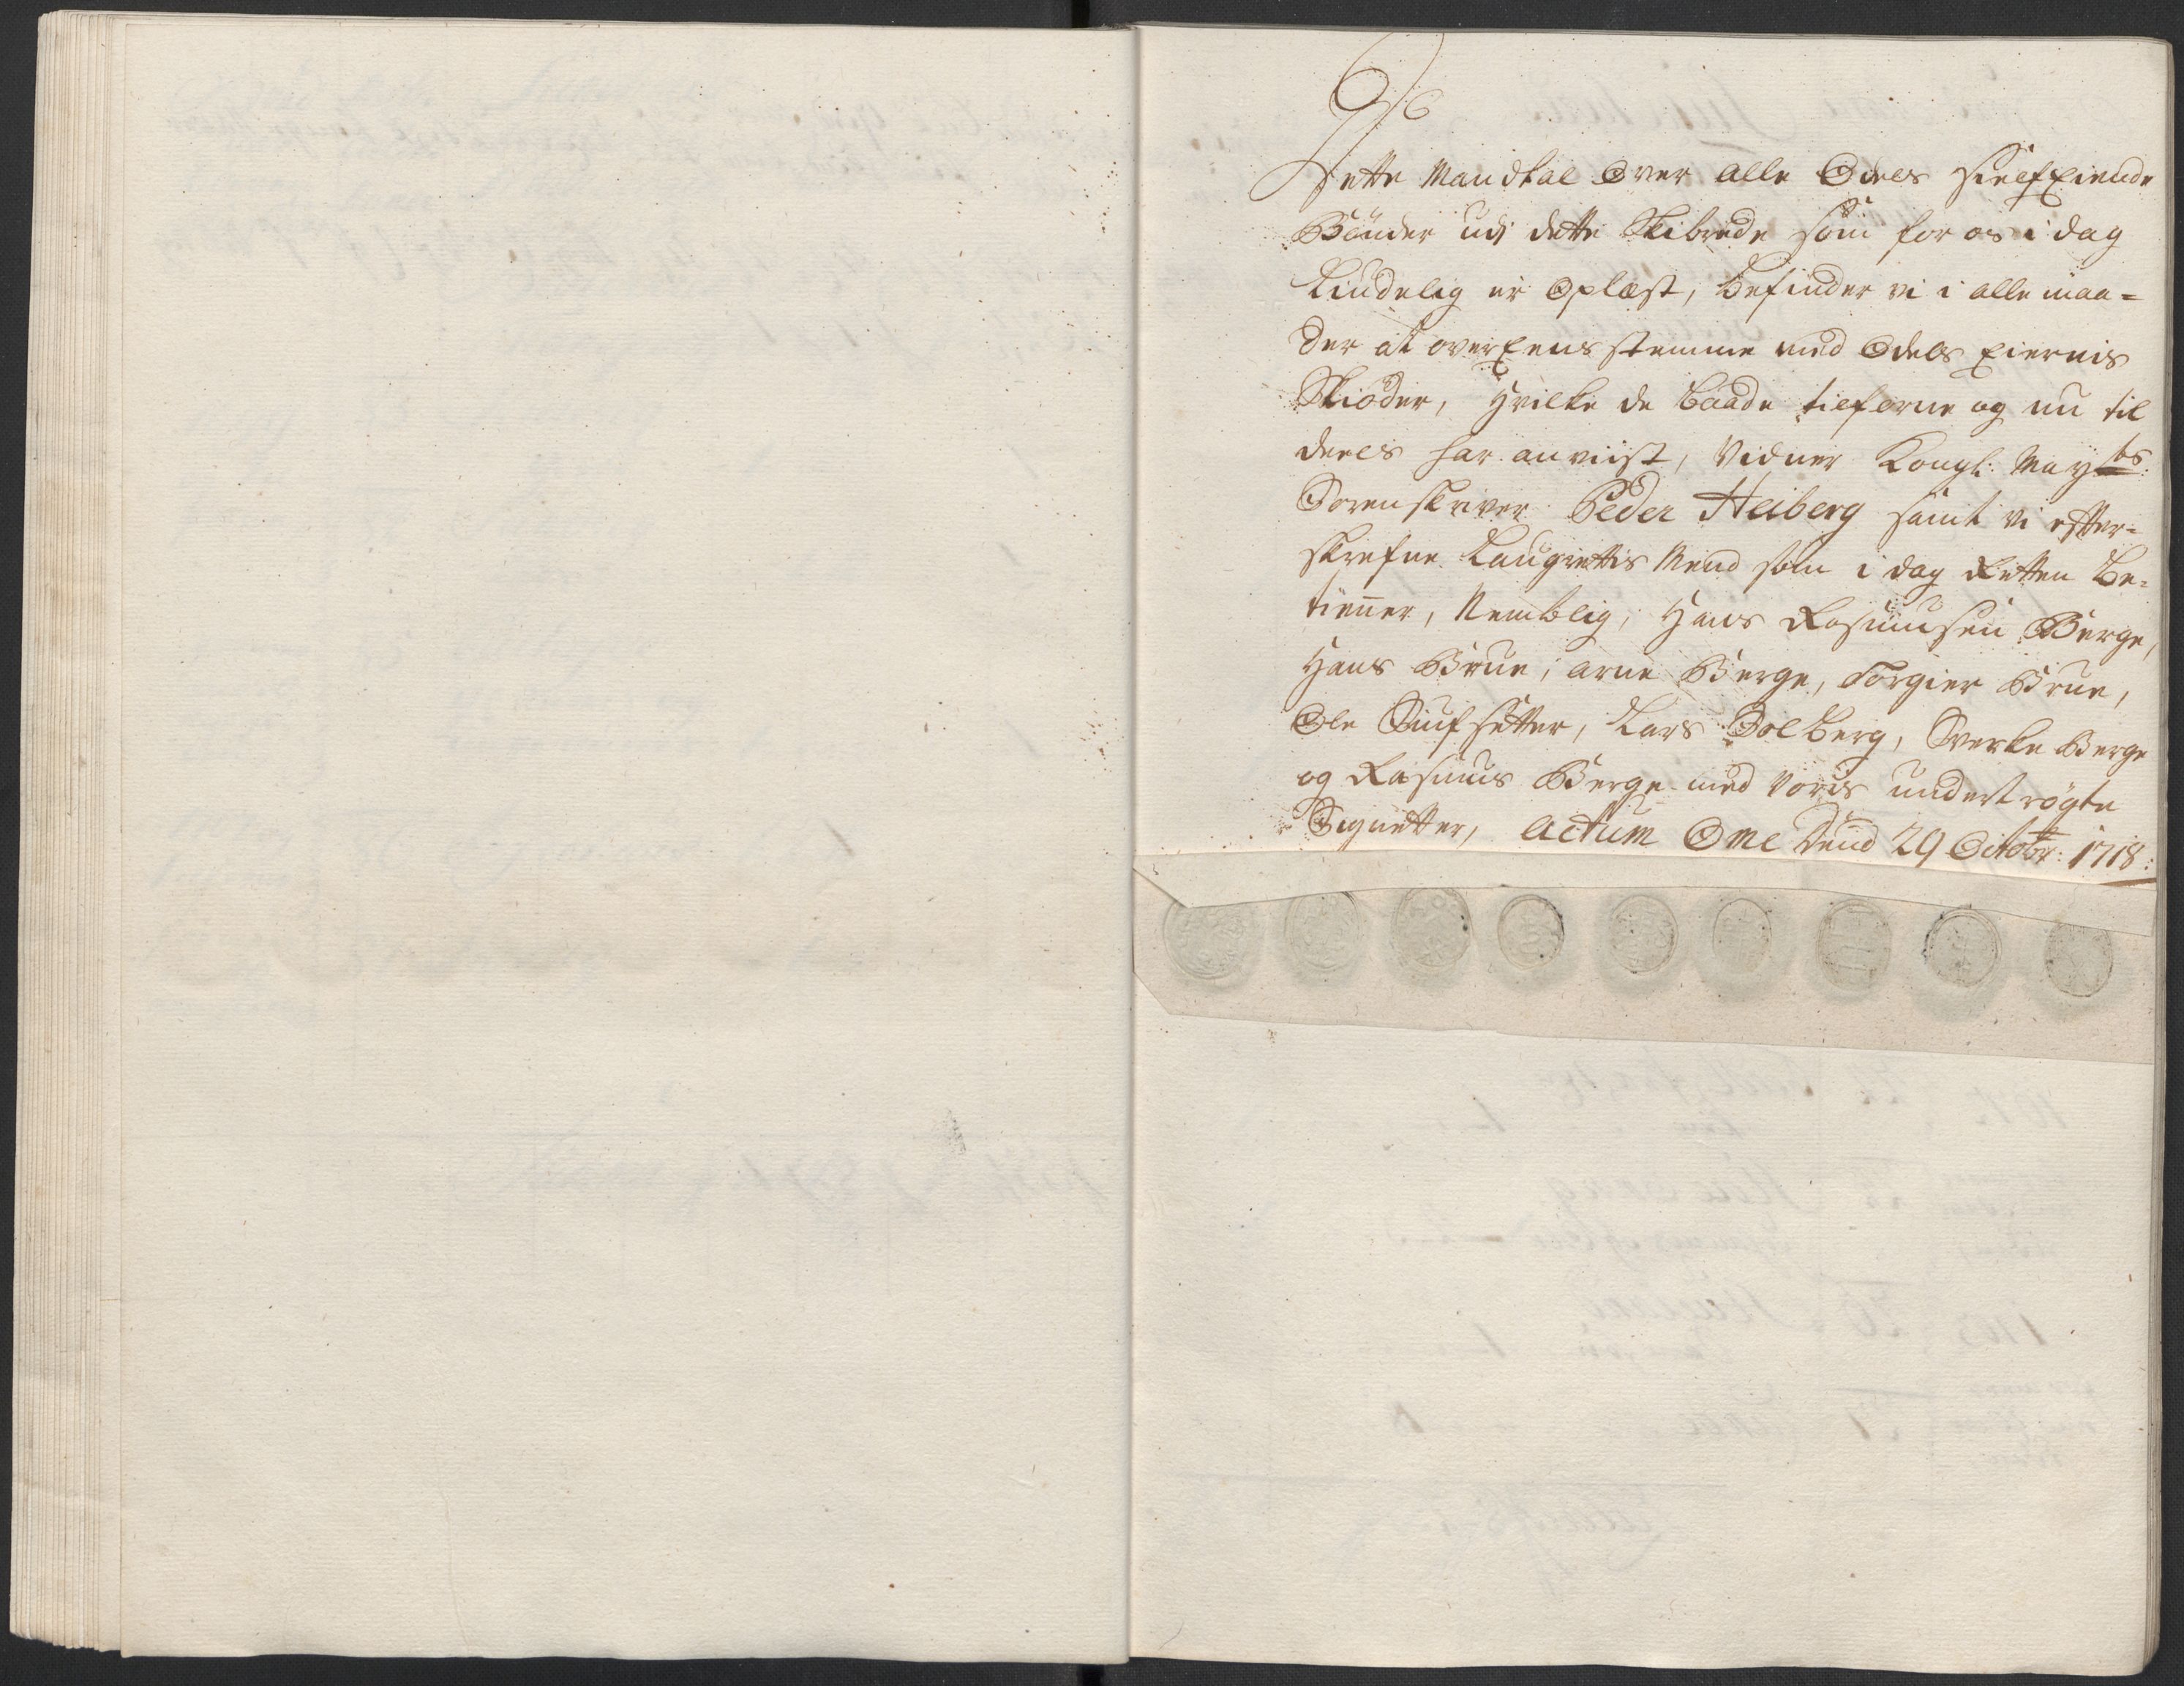 Dette Mandtal Over alle Odels Sielf Eiende
Bönder udj dette Skibrede som for os i dag
Liudelig er Oplæst, befinder vi i alle maa=
der at over Eens stemme med Odels Eiernis
Skiöder, Hvilke de baade tilforne og nu til
deels har anviist, Vidner Kongl: May:ts
Sorenskriver Peder Heiberg samt vi effter=
skrefne Laugrettis Mend som i dag Retten be=
tienner, Nemblig, Hans Rasmusen Berge,
Hans Brue, Arne Berge, Torgier Brue,
Ole Sufsetter, Lars Solberg, Sverke Berge
og Rasmus Berge med voris undertrögte
Signetter, Actum Ome Dend 29 Octobr: 1718: